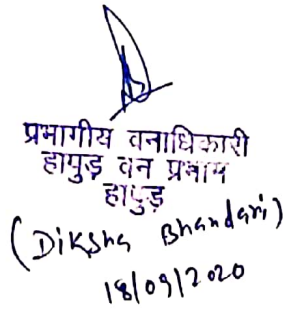 प्रभागीय वनाधिकारी
हापुड़ वन प्रभाग
हापुड़
(Diksha Bhandari)
18/09/2020